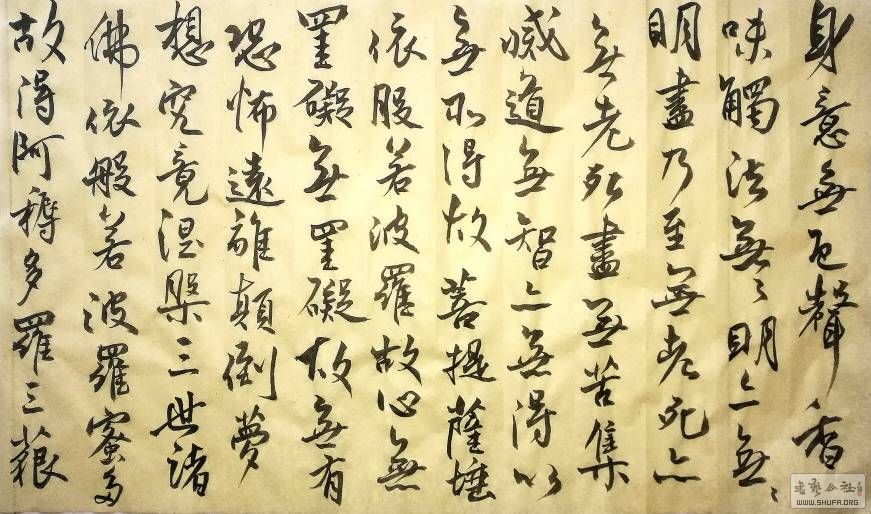 身意無色聲香
味觸法無々明亦無々
明盡乃至無老死亦
無老死盡無苦集
滅道無智亦無得以
無所得故菩提薩埵
依般若波羅故心無
罣礙無罣礙故無有
恐怖遠離顛倒夢
想究竟涅槃三世諸
佛依般若波羅蜜多
故得阿耨多羅三藐
书艺公社
WWW.SHUFA.ORG